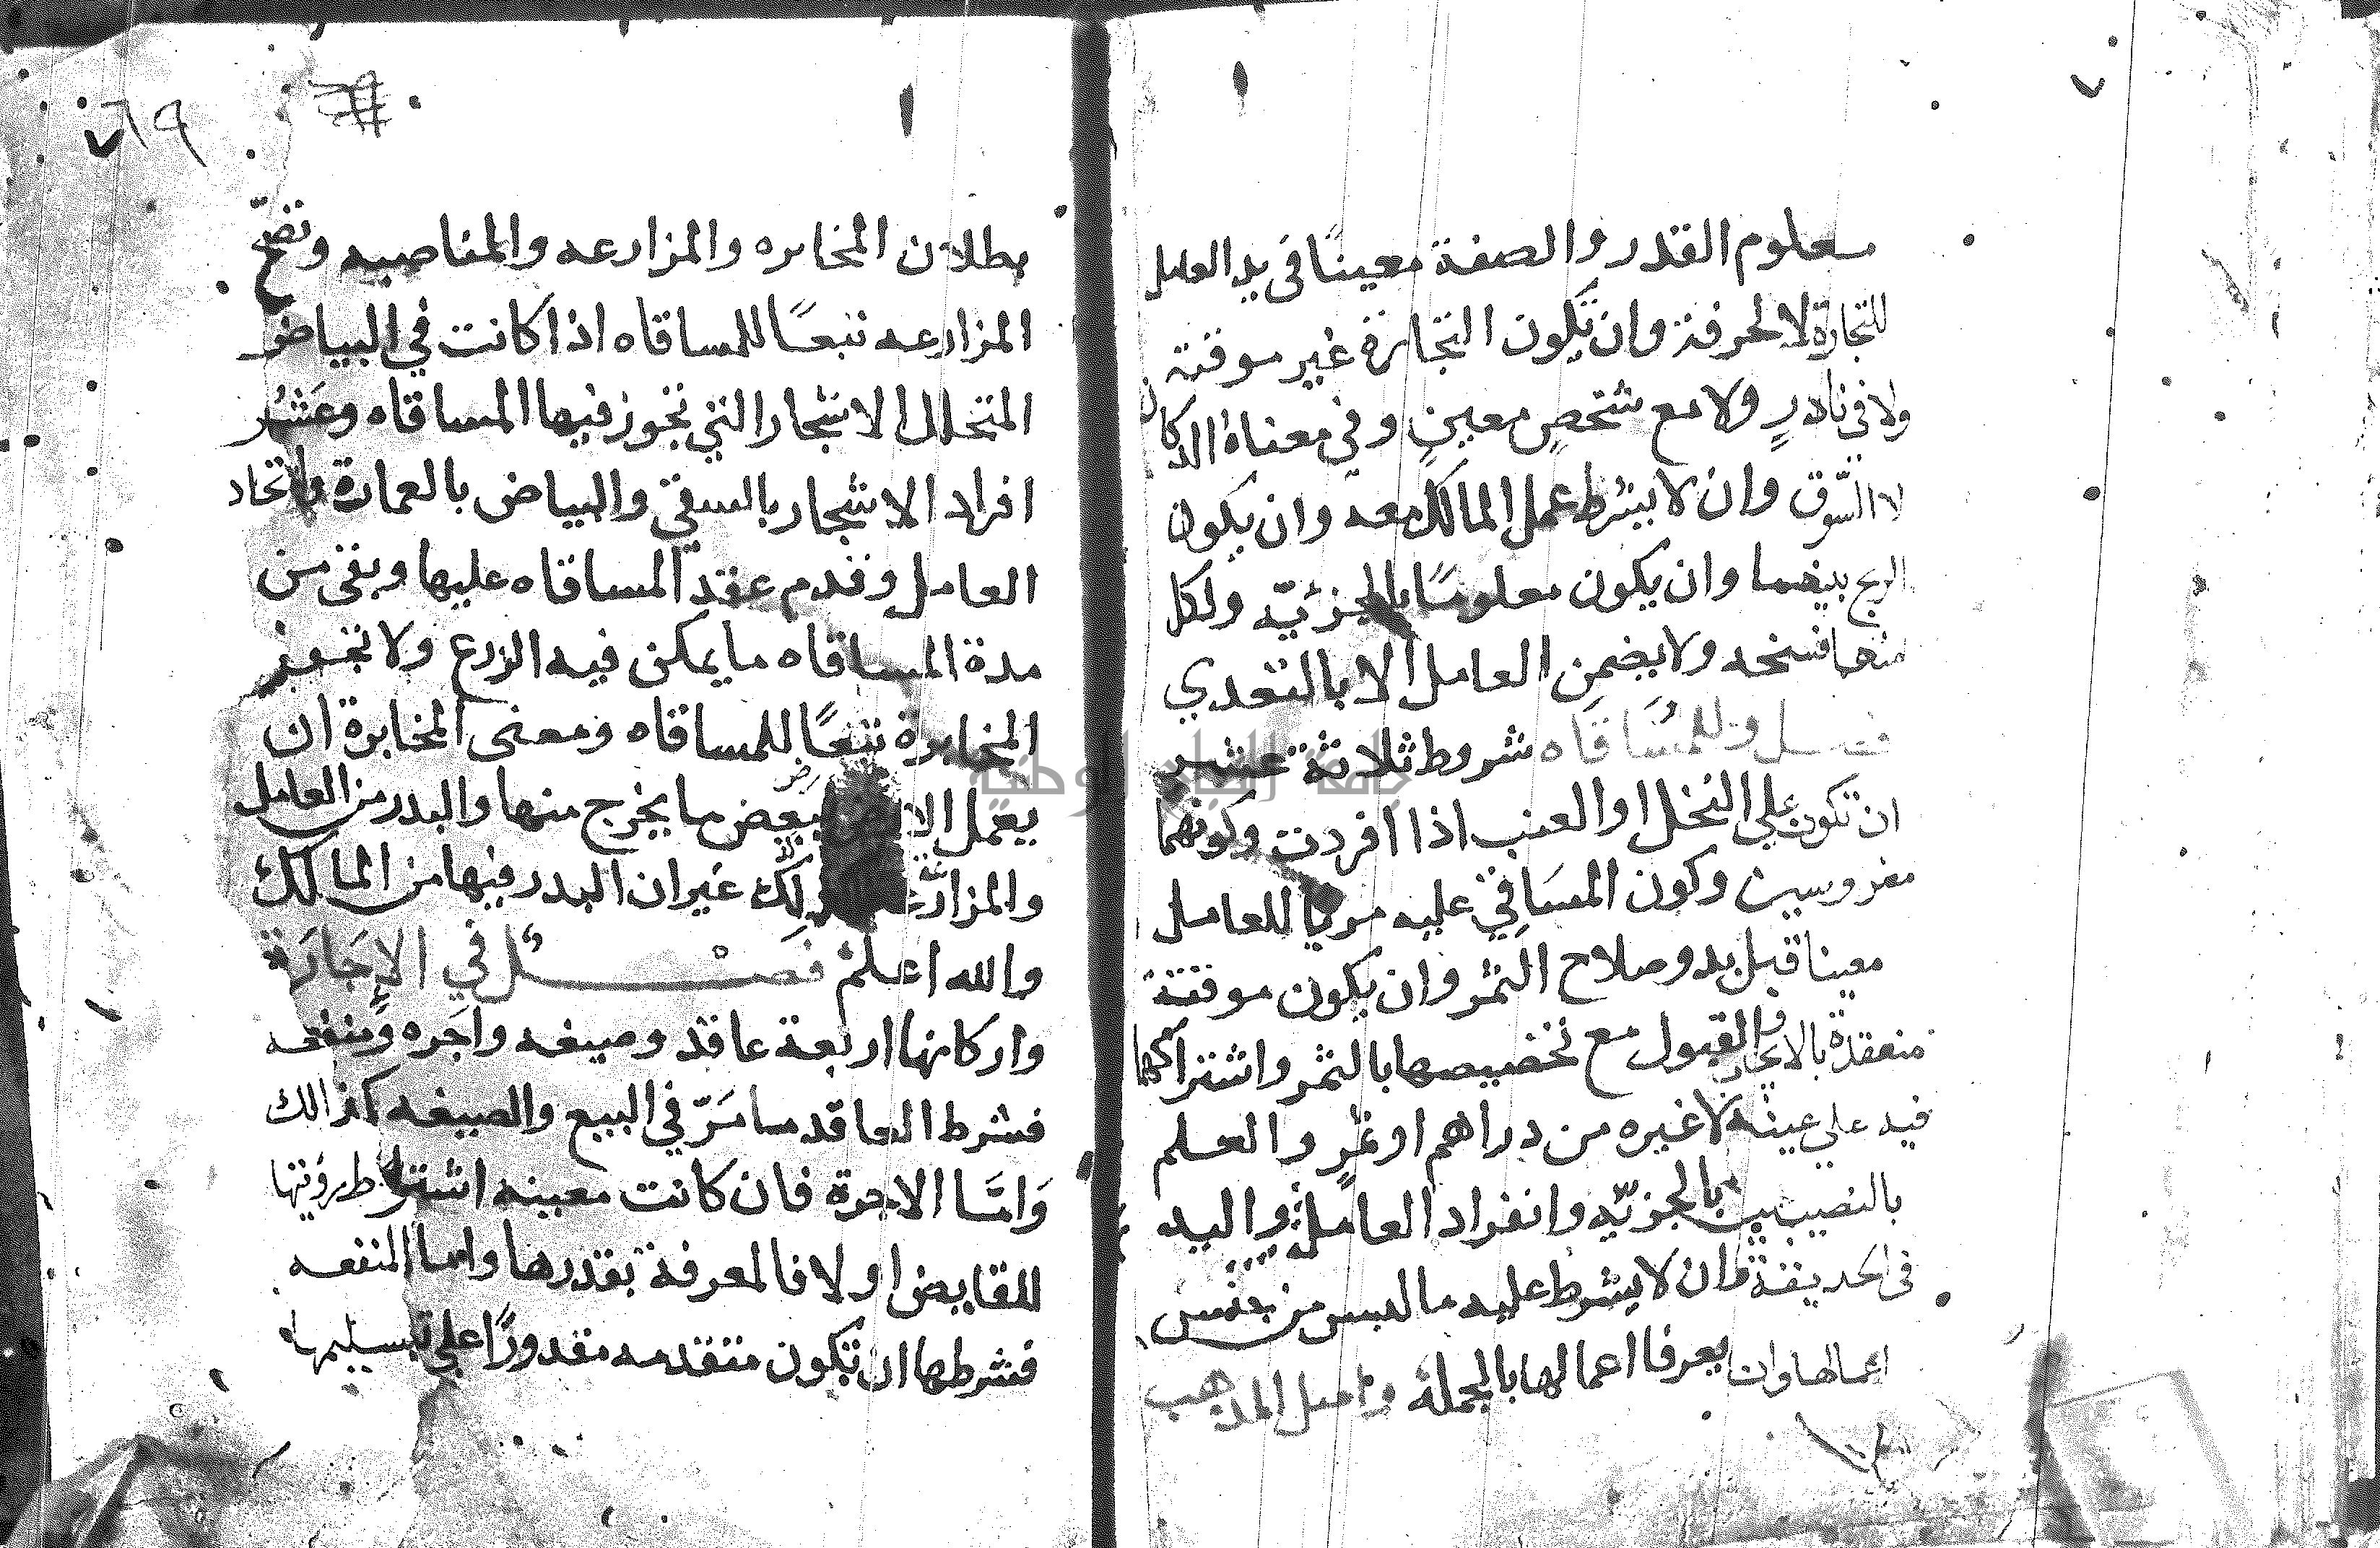 معلوم القدر والصفة معينًا في يد العامل
للتجارة لا لحرفة وان تكون التجارة غير موقتة
ولا في نادرٍ ولا مع شخصٍ معينٍ وفي معناه الدكان
لا السّوق وان لا يشرط عمل المالك معه وان يكون
الربح بينهما وان يكون معلومًا بالجزئيّه ولكل
منهما فسخه ولا يضمن العامل الا بالتعدي
فصل وللمُسَاقَاه شروط ثلاثة عشر
ان تكون علي النخل او العنب اذا افردت وكونهما
مغروسين وكون المسَاقِي عليه مرييا للعامل
معينا قبل بدو صلاح الثمر وان يكون موقتة
منعقدة بالايجاب والقبول مع تخصيصها بالثمر واشتراكهما
فيه علي عينه لا غيره من دراهم او ثمرٍ والعلم
بالنصيبين بالجزئيّه وانفراد العامل واليد
في الحديقة وان لا يشرط عليه ما ليس من جنس
اعمالها وان يعرفا اعمالها بالجملة واصل المذهب
جامعة النجاح الوطنية
٦٩
بطلان المخابره والمزارعه والمناصبه وتصحّ
المزارعه تبعًا للمساقاه اذا كانت في البياض
المتخلل الاشجار التي تجوز فيها المساقاه وعَسُر
افراد الاشجار بالسقي والبياض بالعمارة واتحاد
العامل وقدم عقد المساقاه عليها وبقي من
مدة المساقاه ما يمكن فيه الزرع ولا تجوز
المخابرة تبعًا للمساقاه ومعنى المخابرة ان
يعمل الارض ببعض ما يخرج منها والبدر من العامل
والمزارعة كذلك غير ان البدر فيها من المالك
والله اعلم فصْلٌ في الإجَارَة
واركانها اربعة عاقد وصيغه واجَره ومنفعه
فشرط العاقد ما مَرّ في البيع والصيغه كذالك
وَامَّا الاجرة فان كانت معينه اشترط رؤيتها
للقابض او لا فالمعرفة بقدرها واما المنفعه
فشرطها ان تكون متقدمه مقدورًا علي تسليمها